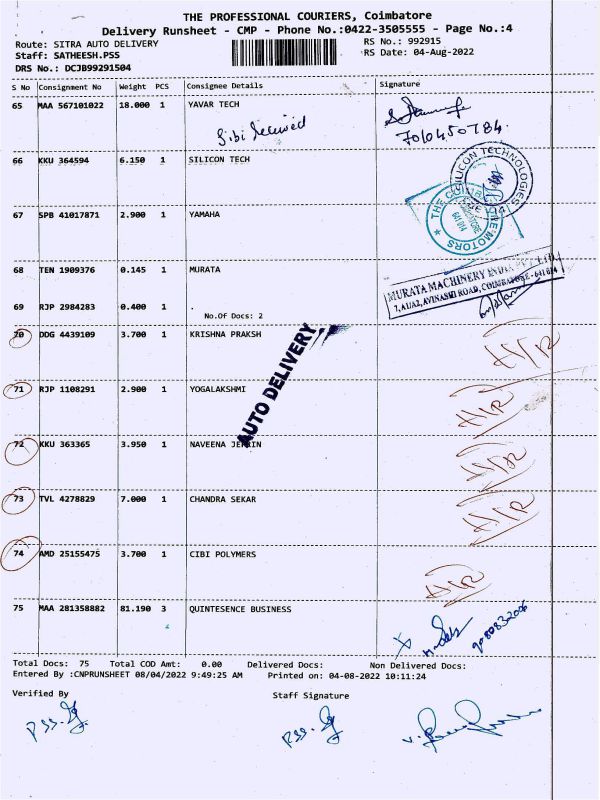 THE PROFESSIONAL COURIERS, Coimbatore
Delivery Runsheet - CMP - Phone No.:0422-3505555 - Page No.:4
Route: SITRA AUTO DELIVERY RS No.: 992915
Staff: SATHEESH.PSS RS Date: 04-Aug-2022
DRS No.: DCJB99291504
S No Consignment No Weight PCS Consignee Details Signature
65 MAA 567101022 18.000 1 YAVAR TECH
Sibi received 7010450784
66 KKU 364594 6.150 1 SILICON TECH
SILICON TECHNOLOGIES
67 SPB 41017871 2.900 1 YAMAHA
MOTORS
641 014
68 TEN 1909376 0.145 1 MURATA
MURATA MACHINERY INDIA PVT. LTD.
7, A1/A2, AVINASHI ROAD, COIMBATORE - 641 014
69 RJP 2984283 0.400 1
No.Of Docs: 2
70 DDG 4439109 3.700 1 KRISHNA PRAKSH
AUTO DELIVERY
71 RJP 1108291 2.900 1 YOGALAKSHMI
72 KKU 363365 3.950 1 NAVEENA JERIN
73 TVL 4278829 7.000 1 CHANDRA SEKAR
74 AMD 25155475 3.700 1 CIBI POLYMERS
75 MAA 281358882 81.190 3 QUINTESENCE BUSINESS
Total Docs: 75 Total COD Amt: 0.00 Delivered Docs: Non Delivered Docs:
Entered By :CNPRUNSHEET 08/04/2022 9:49:25 AM Printed on: 04-08-2022 10:11:24
Verified By Staff Signature